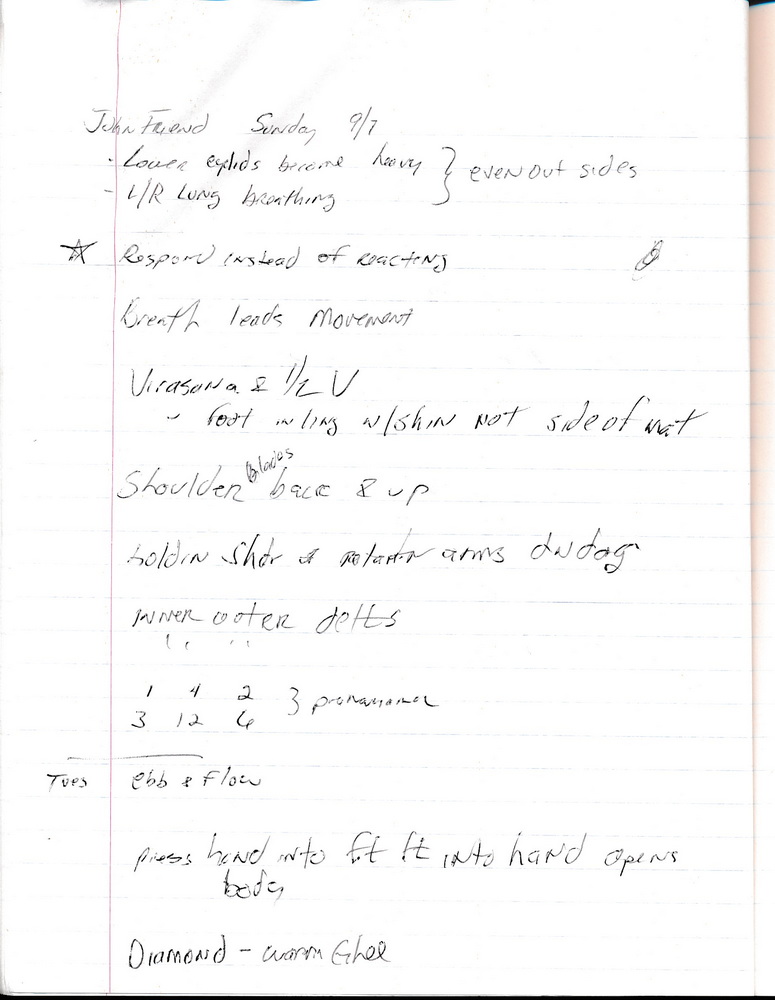 John Friend Sunday 9/7
- Lower eyelids become heavy } even out sides
- L/R Lung breathing
☆ Respond instead of reacting
Breath leads Movement
Virasana & 1/2 V
- foot in ling w/shin not side of mat
Shoulder blades back & up
holdin Shdr & rotatin arms dwdog
inner outer delts
" "
1 4 2 } pranayama
3 12 6
Tues ebb & flow
press hand into ft ft into hand opens
body
Diamond - warm Ghee